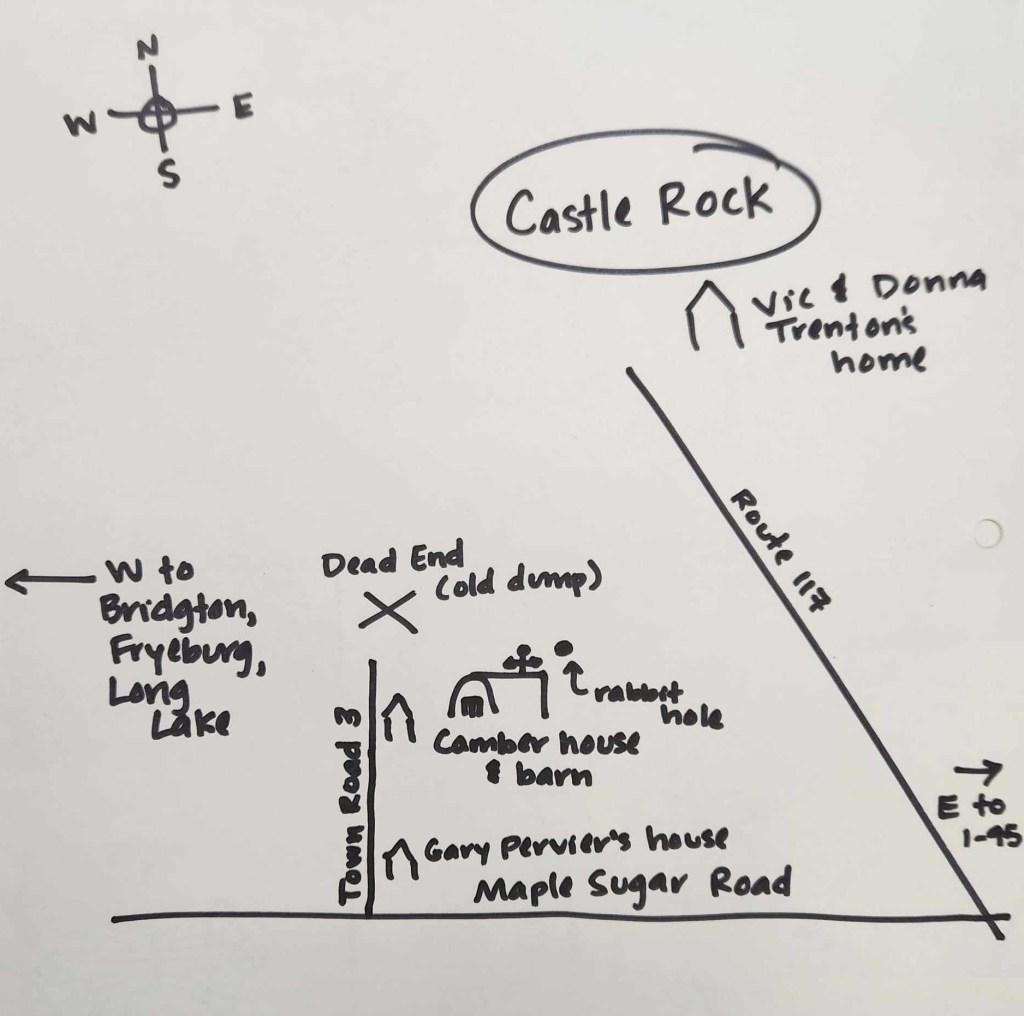 N
W
E
S
Castle Rock
Vic & Donna
Trenton's
home
Route 117
W to
Bridgton,
Fryeburg,
Long
Lake
Dead End
(old dump)
rabbit
hole
Camber house
& barn
Town Road 3
E to
I-95
Gary Pervier's house
Maple Sugar Road